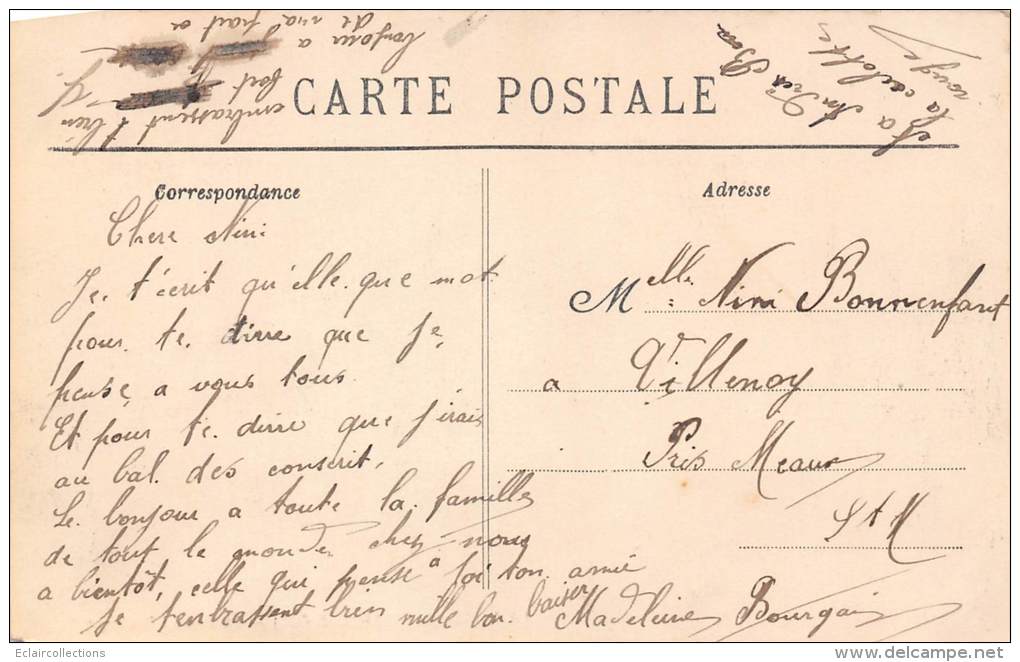 CARTE POSTALE
Correspondance
Chere Nini
Je t'écrit qu'elle que mot
pour te dirre que je
pense a vous tous
Et pour te dirre que j'irais
au bal des conscrit,
Le bonjour a toute la famille
de tout le monde chez nous
a bientôt, celle qui pense a toi ton amie
Je t'enbrassent bien mille bon baiser
Madeleine Bourgain
Adresse
Melle Nini Bonnenfant
a Villenoy
Près Meaux
S t M
bonjour a
de ma part a
fort
embrassent bien
la calotte
rouge
Eclaircollections
https://www.delcampe.net